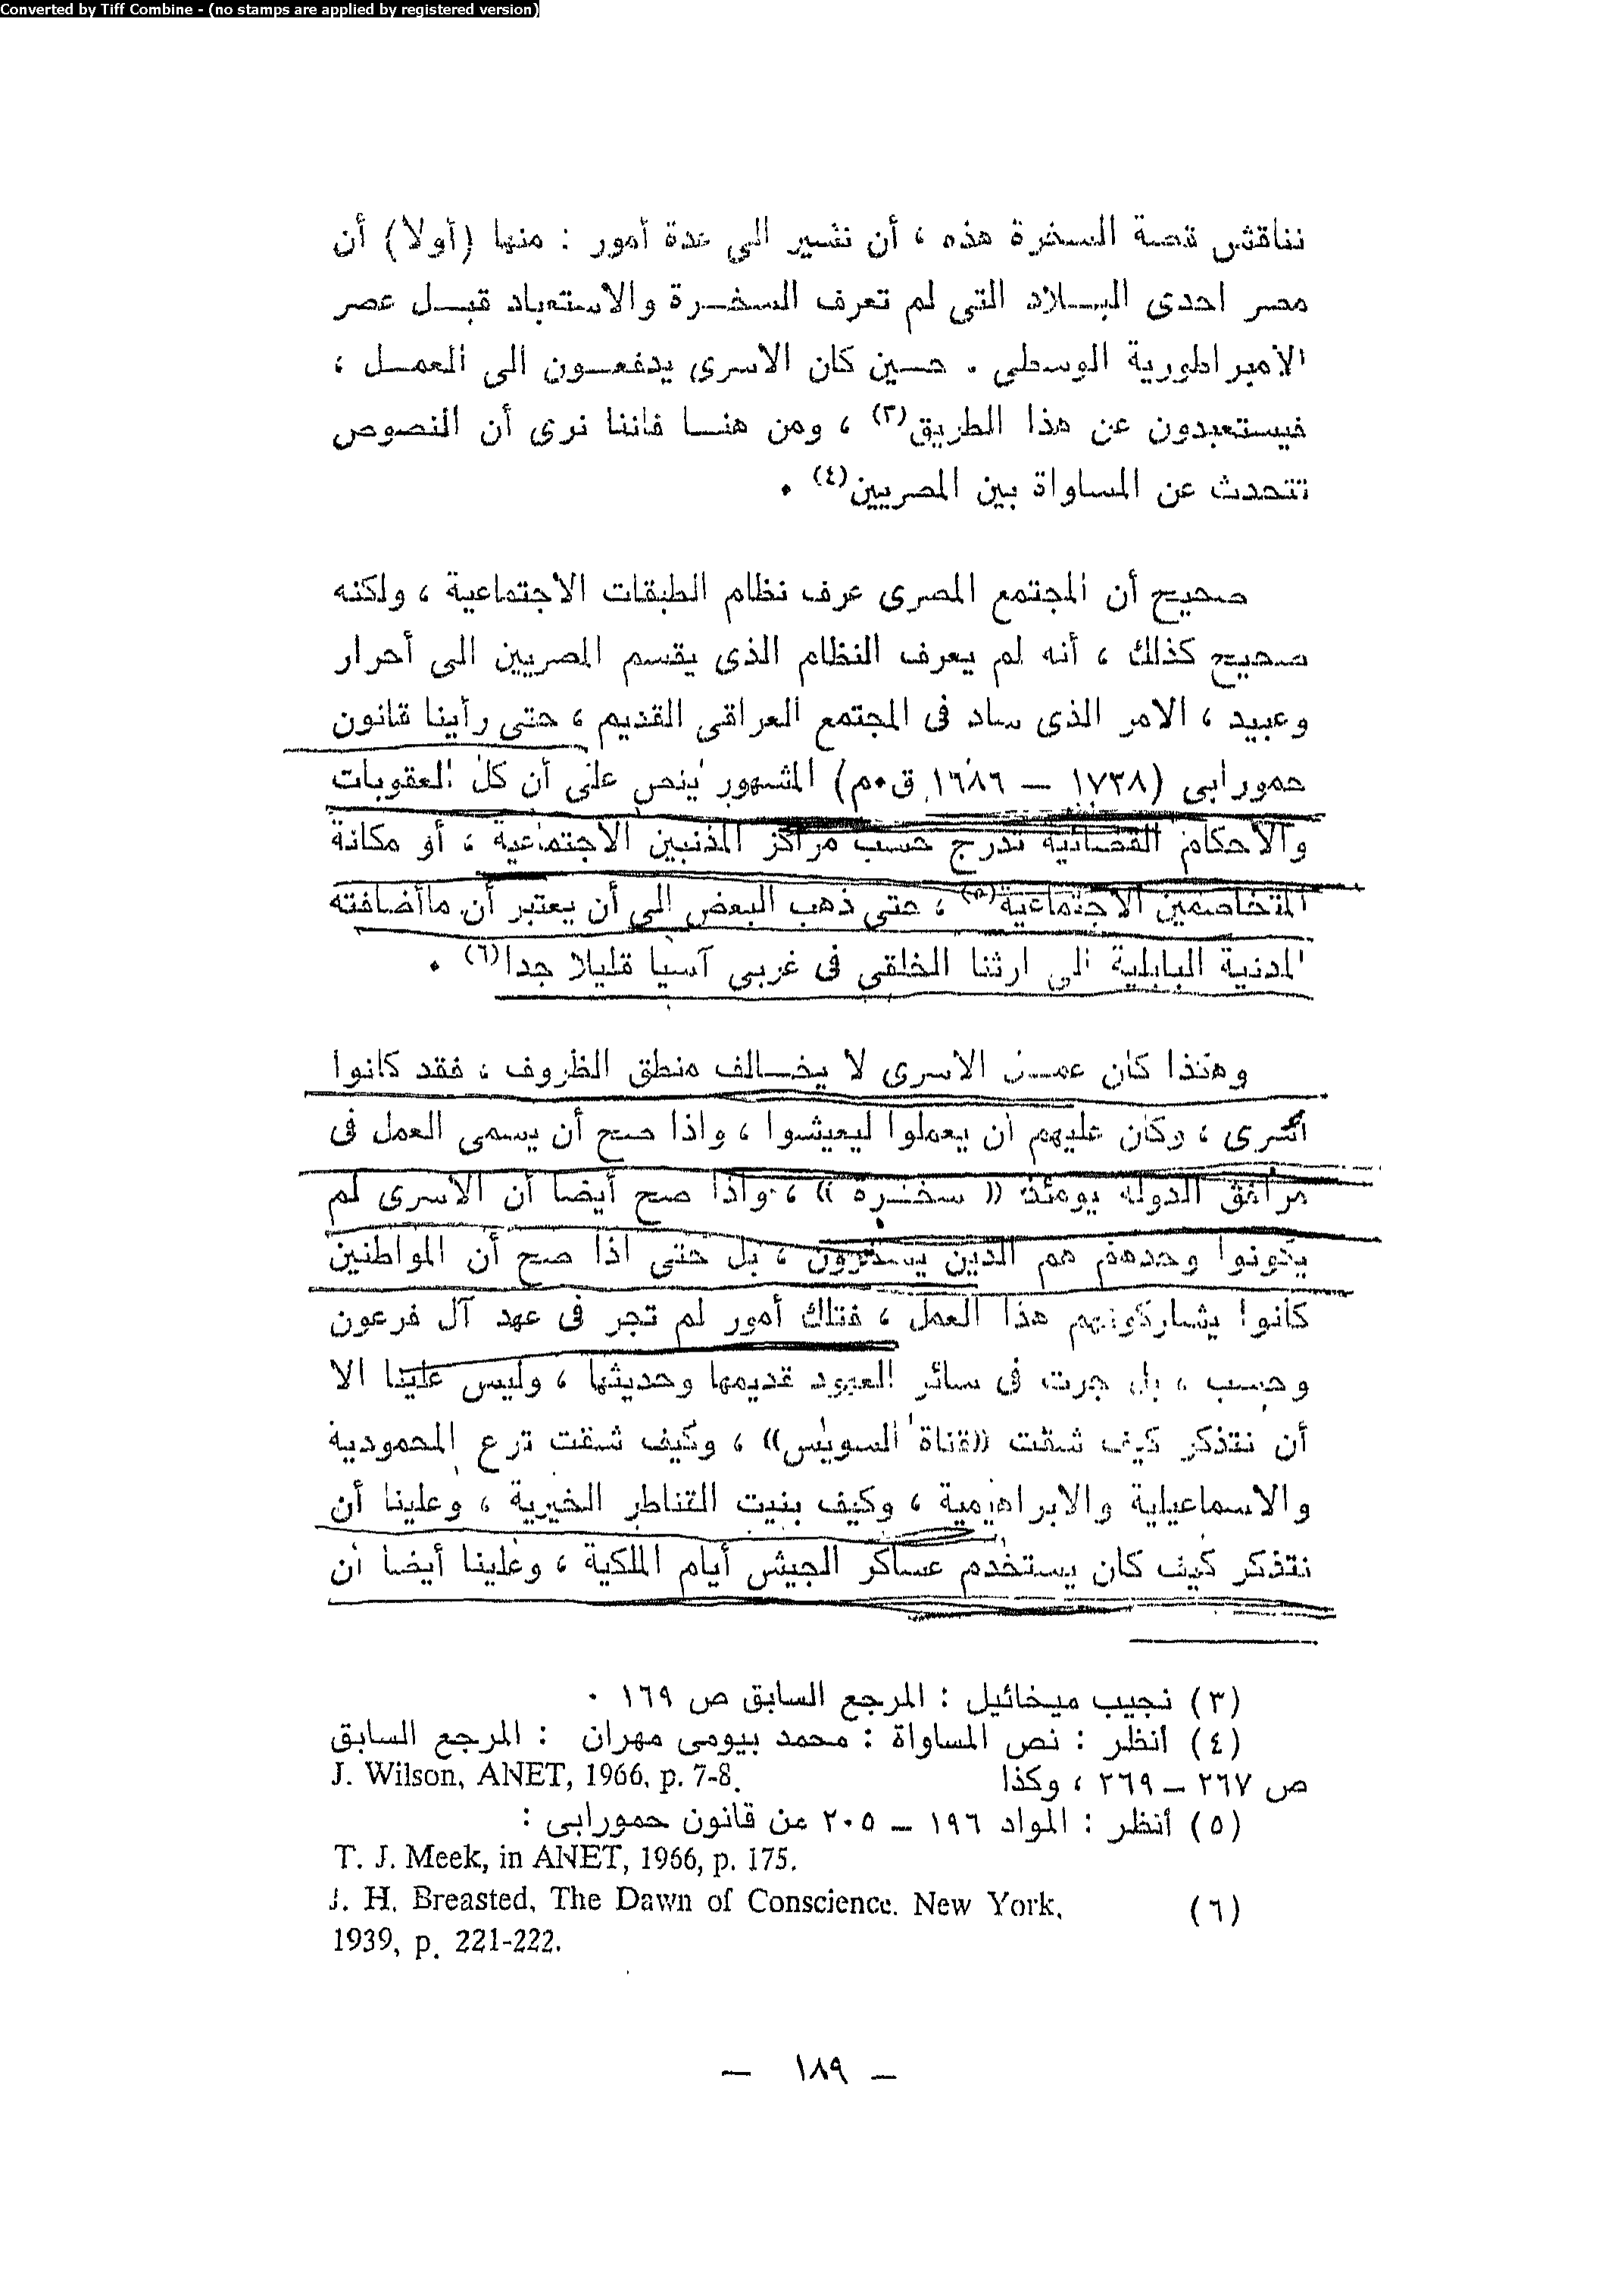 Converted by Tiff Combine - (no stamps are applied by registered version)
نناقش قصة السخرة هذه ، أن نشير الى عدة أمور : منها (أولا) أن
مصر احدى البلاد التى لم تعرف السخرة والاستعباد قبل عصر
الامبراطورية الوسطى . حسين كان الاسرى يدفعون الى العمل ،
فيستعبدون عن هذا الطريق(٣) ، ومن هنا فاننا نرى أن النصوص
تتحدث عن المساواة بين المصريين(٤) .
صحيح أن المجتمع المصرى عرف نظام الطبقات الاجتماعية ، ولكنه
صحيح كذلك ، أنه لم يعرف النظام الذى يقسم المصريين الى أحرار
وعبيد ، الامر الذى ساد فى المجتمع العراقى القديم ، حتى رأينا قانون
حمورابى (١٧٣٨ – ١٦٨٦ ق.م) المشهور ينص على أن كل العقوبات
والاحكام القضائية تدرج حسب مراكز المذنبين الاجتماعية ، أو مكانة
المتخاصمين الاجتماعية(٥) ، حتى ذهب البعض الى أن يعتبر أن ماأضافته
المدنية البابلية الى ارثنا الخلقى فى غربى آسيا قليلا جدا(٦) .
وهكذا كان عمل الاسرى لا يخالف منطق الظروف ، فقد كانوا
أسرى ، وكان عليهم أن يعملوا ليعيشوا ، واذا صح أن يسمى العمل فى
مرافق الدولة يومئذ « سخرة » ، واذا صح أيضا أن الاسرى لم
يكونوا وحدهم هم الذين يسخرون ، بل حتى اذا صح أن المواطنين
كانوا يشاركونهم هذا العمل ، فتلك أمور لم تجر فى عهد آل فرعون
وحسب ، بل جرت فى سائر العهود قديمها وحديثها ، وليس علينا الا
أن نتذكر كيف شقت «قناة السويس» ، وكيف شقت ترع المحمودية
والاسماعيلية والابراهيمية ، وكيف بنيت القناطر الخيرية ، وعلينا أن
نتذكر كيف كان يستخدم عساكر الجيش أيام الملكية ، وعلينا أيضا أن
(٣) نجيب ميخائيل : المرجع السابق ص ١٦٩ .
(٤) أنظر : نص المساواة : محمد بيومى مهران : المرجع السابق
ص ٢٦٧ – ٢٦٩ ، وكذا J. Wilson, ANET, 1966, p. 7-8.
(٥) أنظر : المواد ١٩٦ – ٢٠٥ من قانون حمورابى :
T. J. Meek, in ANET, 1966, p. 175.
(٦) J. H. Breasted, The Dawn of Conscience. New York,
1939, p. 221-222.
– ١٨٩ –